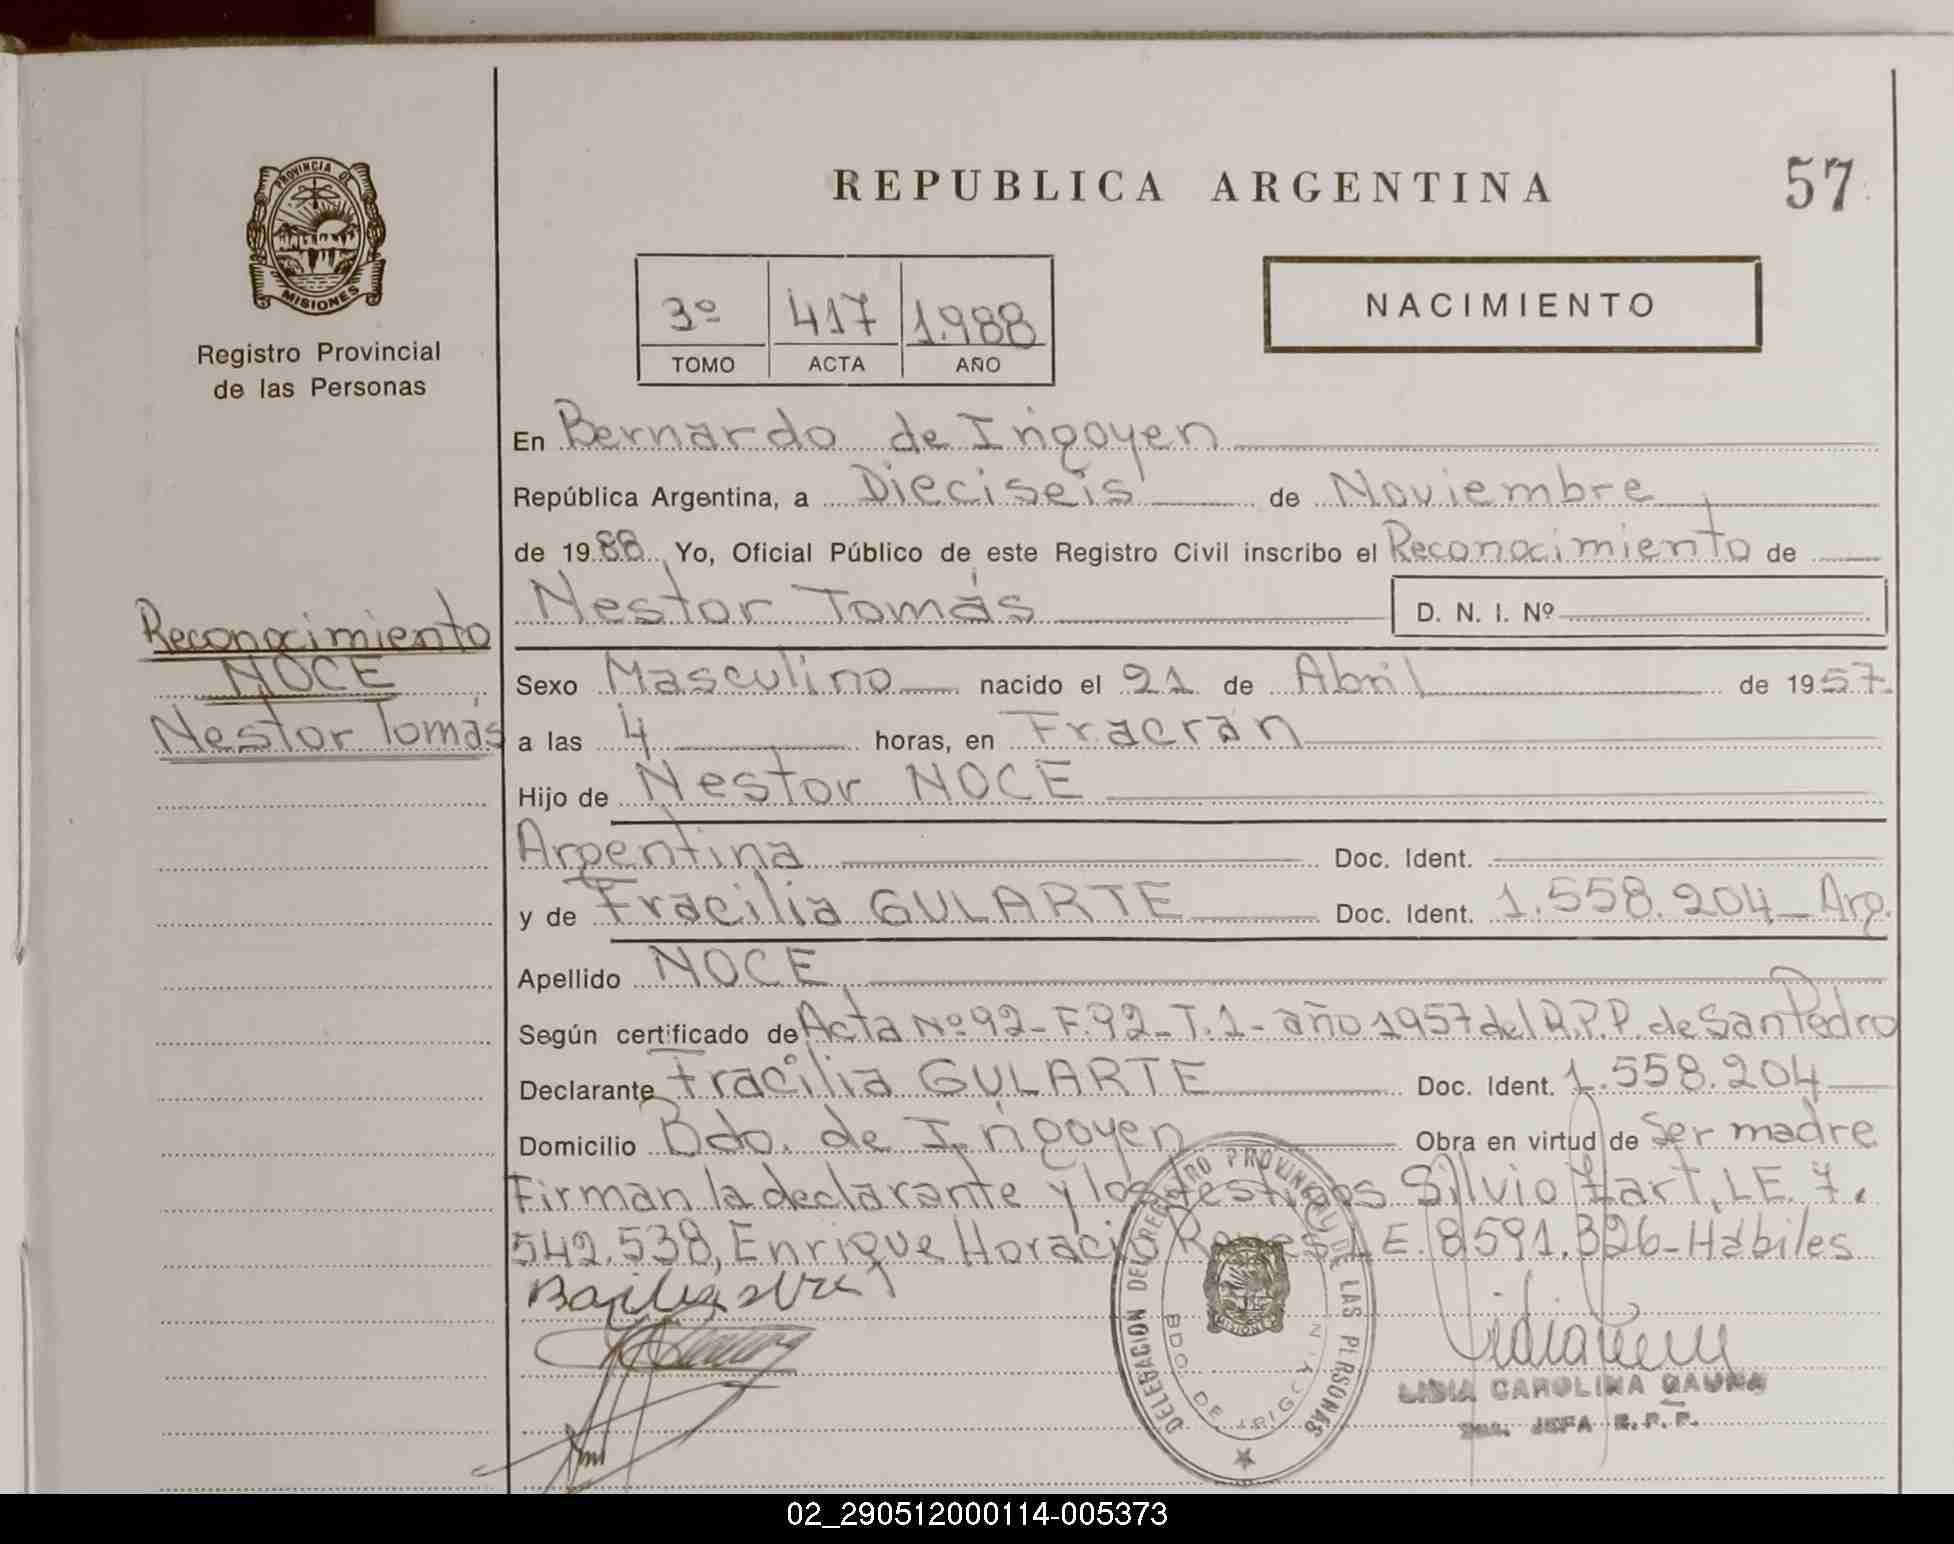 REPUBLICA ARGENTINA
57
PROVINCIA DE
MISIONES
Registro Provincial
de las Personas
3º 417 1.988
TOMO ACTA AÑO
NACIMIENTO
En Bernardo de Irigoyen
República Argentina, a Dieciseis de Noviembre
de 1988 Yo, Oficial Público de este Registro Civil inscribo el Reconocimiento de
Nestor Tomás D. N. I. Nº
Reconocimiento
NOCE
Nestor Tomás
Sexo Masculino nacido el 21 de Abril de 1957.
a las 4 horas, en Fracrán
Hijo de Nestor NOCE
Argentina Doc. Ident.
y de Fracilia GULARTE Doc. Ident. 1.558.204 - Arg.
Apellido NOCE
Según certificado de Acta Nº 92 - F.92 - T.1 - año 1957 del R.P.P. de San Pedro
Declarante Fracilia GULARTE Doc. Ident. 1.558.204
Domicilio Bdo. de Irigoyen Obra en virtud de Ser madre
Firman la declarante y los testigos Silvio L.E. 7.
542.538, Enrique Horacio Reyes L.E. 8.591.326 - Hábiles
DELEGACION DEL REGISTRO PROVINCIAL DE LAS PERSONAS
BDO DE IRIGOYEN
MISIONES
LIDIA CAROLINA GAUNA
JEFA R.P.P.
02_290512000114-005373